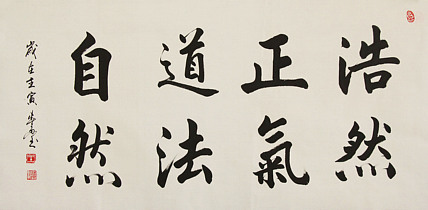 浩然
正氣
道法
自然
歲在壬寅